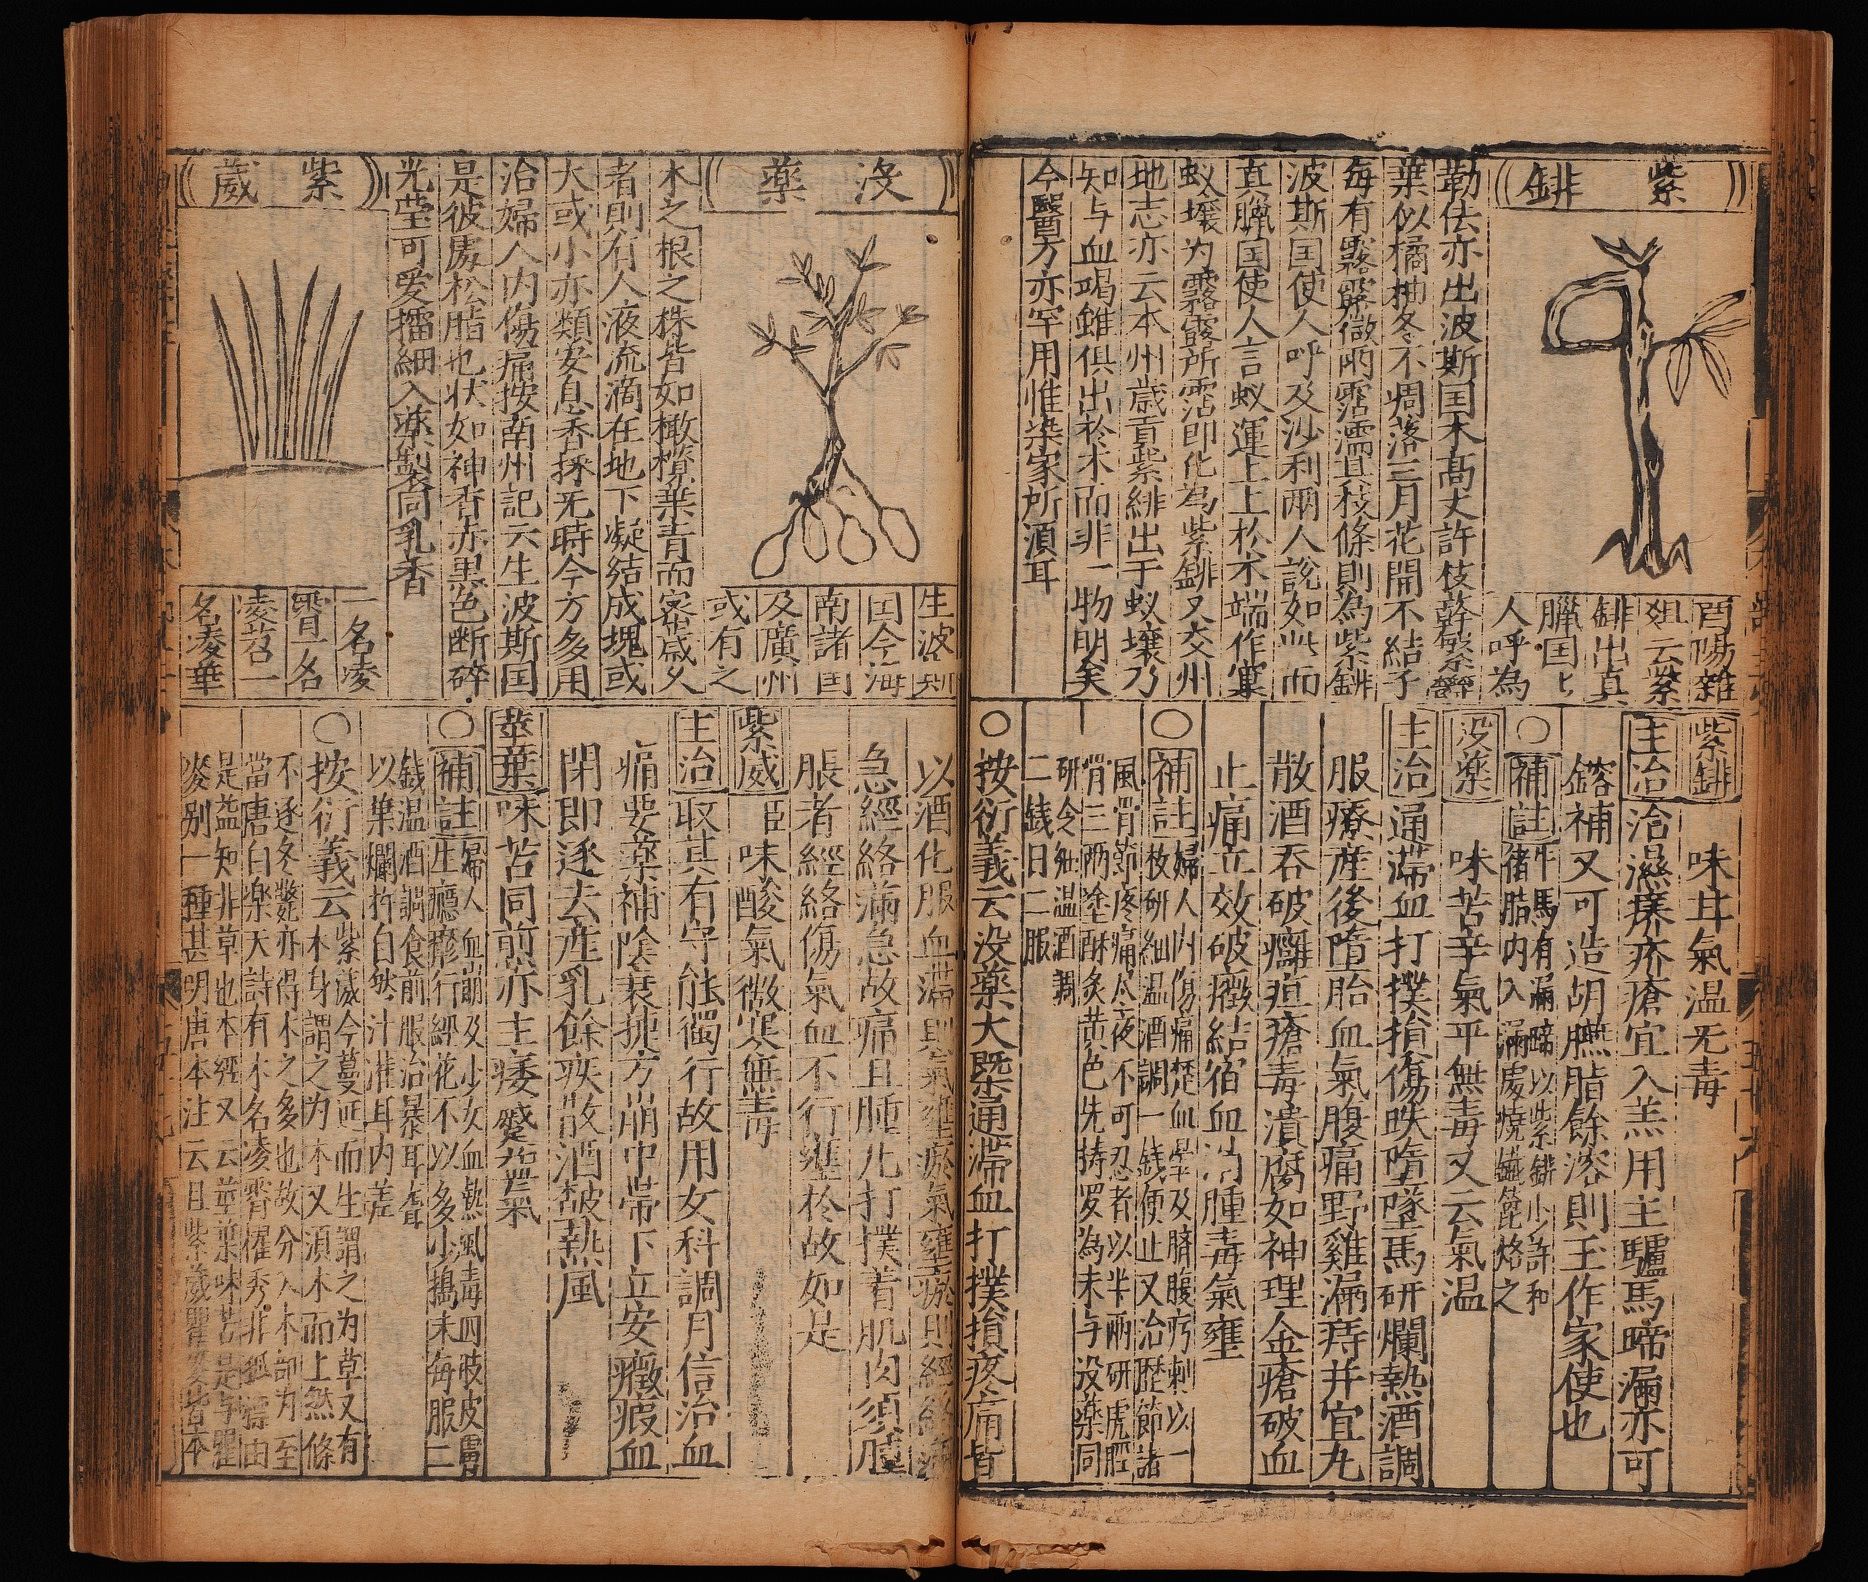 紫鉚
酉陽雜
俎云紫
鉚出真
臘国七
人呼為
勒佉亦出波斯国木高丈許枝幹繁欝
葉似橘柚冬不凋落三月花開不結子
每有霧露微雨露濡其枝條則為紫鉚
波斯国使人呼及沙利兩人說如此而
真臘国使人言蚁運上上於木端作窠
蚁壤为霧露所霑即化為紫鉚又交州
地志亦云本州歲貢紫緋出于蚁壤乃
知与血竭雖俱出於木而非一物明矣
今醫方亦罕用惟染家所須耳
紫鉚　味甘氣温无毒
主治　治濕痒疥瘡宜入羔用主驢馬蹄漏亦可
鎔補又可造胡臙脂餘滓則玉作家使也
○補註　牛馬有漏蹄以紫鉚少許和
猪脂内入漏處燒鐵篦烙之
没藥　味苦辛氣平無毒又云氣温
主治　通滞血打撲損傷昳墮墜馬研爛熱酒調
服療産後墮胎血氣腹痛野雞漏痔并宜丸
散酒吞破癰疽瘡毒潰腐如神理金瘡破血
止痛立效破癥結宿血消腫毒氣壅
○補註　婦人内傷痛楚血暈及臍腹㽲刺以一
枚研細温酒調一錢便止又治歷節諸
風骨節疼痛尽夜不可忍者以半兩研虎脛
骨三兩塗酥炙黄色先擣罗為末与没藥同
研令細温酒調
二錢日二服
○按衍義云没藥大槩通滞血打撲損疼痛皆
没藥
生波斯
国今海
南諸国
及廣州
或有之
木之根之株皆如橄欖葉青而密歲久
者則有人液流滴在地下凝结成塊或
大或小亦類安息香採无時今方多用
治婦人内傷痛按南州記云生波斯国
是彼處松脂也状如神香赤黒色断碎
光莹可爱擂細入藥製同乳香
紫葳
一名凌
霄一名
凌苕一
名凌華
以酒化服血滞則氣壅瘀氣壅瘀則經絡滿
急經絡滿急故痛且腫凡打撲着肌肉須腫
脹者經絡傷氣血不行壅於故如是
紫威　臣味酸氣微寒無毒
主治　取其有守能獨行故用女科調月信治血
痛要藥補陰衰捷方崩中帶下立安癥瘕血
閉即逐去産乳餘疾散酒皶熱風
莖葉　味苦同煎亦主痿躄益氣
○補註　婦人血崩及少女血熱風毒四肢皮膚
生癮瘮行經花不以多少搗末每服二
錢温酒調食前服治暴耳聾
以葉爛杵自然汁灌耳内差
○按衍義云紫葳今蔓延而生謂之为草又有
木身謂之为木又須木而上然條
不逐冬斃亦得木之多也故分入木部为至
當唐白樂天詩有木名凌霄擢秀非孤標由
是益知非草也本經又云莖葉味苦是与瞿
麥别一種甚明唐本注云且紫葳瞿麥皆本